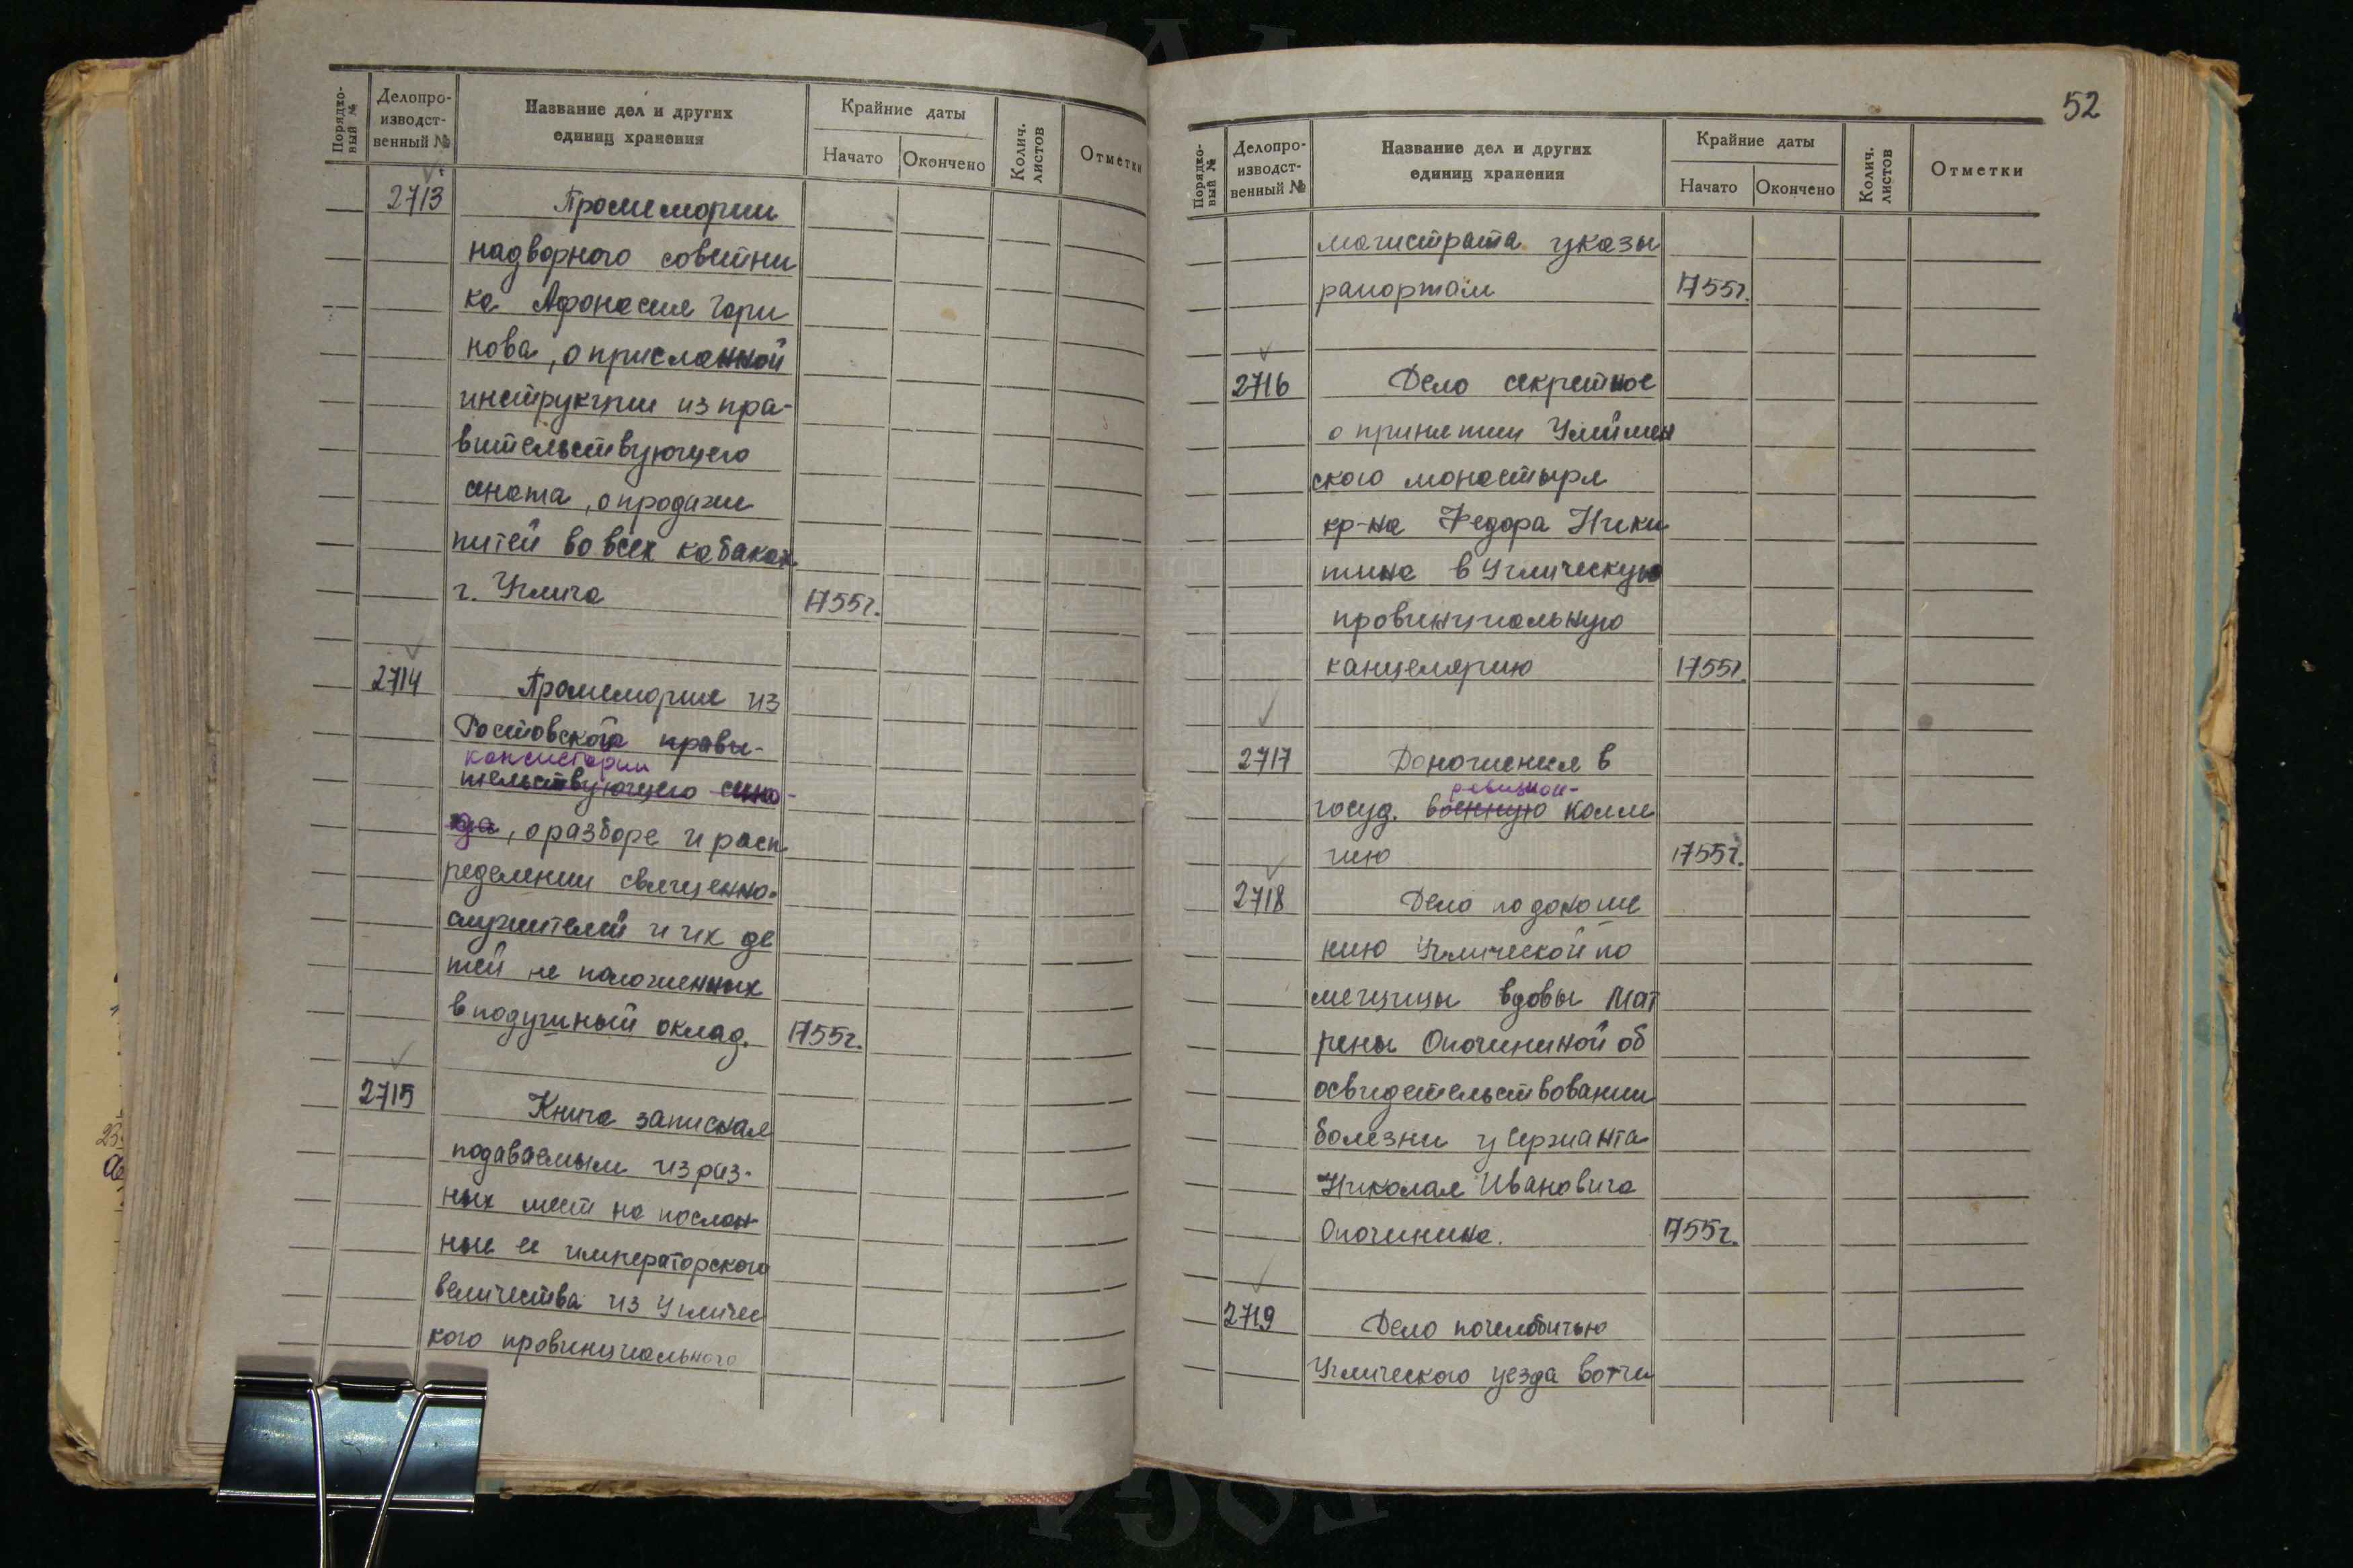 Порядко-
вый №
Делопро-
изводст-
венный №
Название дел и других
единиц хранения
Крайние даты
Начато
Окончено
Колич.
листов
Отметки
2713
Промемории
надворного советни
ка Афонасия Гори
нова, о присланной
инструкции из пра-
вительствующего
сената, о продажи
питей во всех кабаках
г. Углича
1755г.
2714
Промемория из
Ростовской правы-
консистории
тельствующего сино-
да, о разборе и расп
ределении священно-
служителей и их де
тей не положенных
в подушный оклад.
1755г.
2715
Книга записная
подаваемым из раз-
ных мест на послан
ные ее императорского
величества из Угличес
кого провинциального
52
Порядко-
вый №
Делопро-
изводст-
венный №
Название дел и других
единиц хранения
Крайние даты
Начато
Окончено
Колич.
листов
Отметки
магистрата указы
рапортам
1755г.
2716
Дело секретное
о принятии Улеймен
ского монастыря
кр-на Федора Ники
тина в Угличскую
провинциальную
канцелярию
1755г.
2717
Доношения в
ревизион-
госуд. военную колле
гию
1755г.
2718
Дело по доноше
нию Угличской по
мещицы вдовы Мат
рены Опочининой об
освидетельствовании
болезни у сержанта
Николая Ивановича
Опочинина.
1755г.
2719
Дело по челобитью
Угличского уезда вотчи